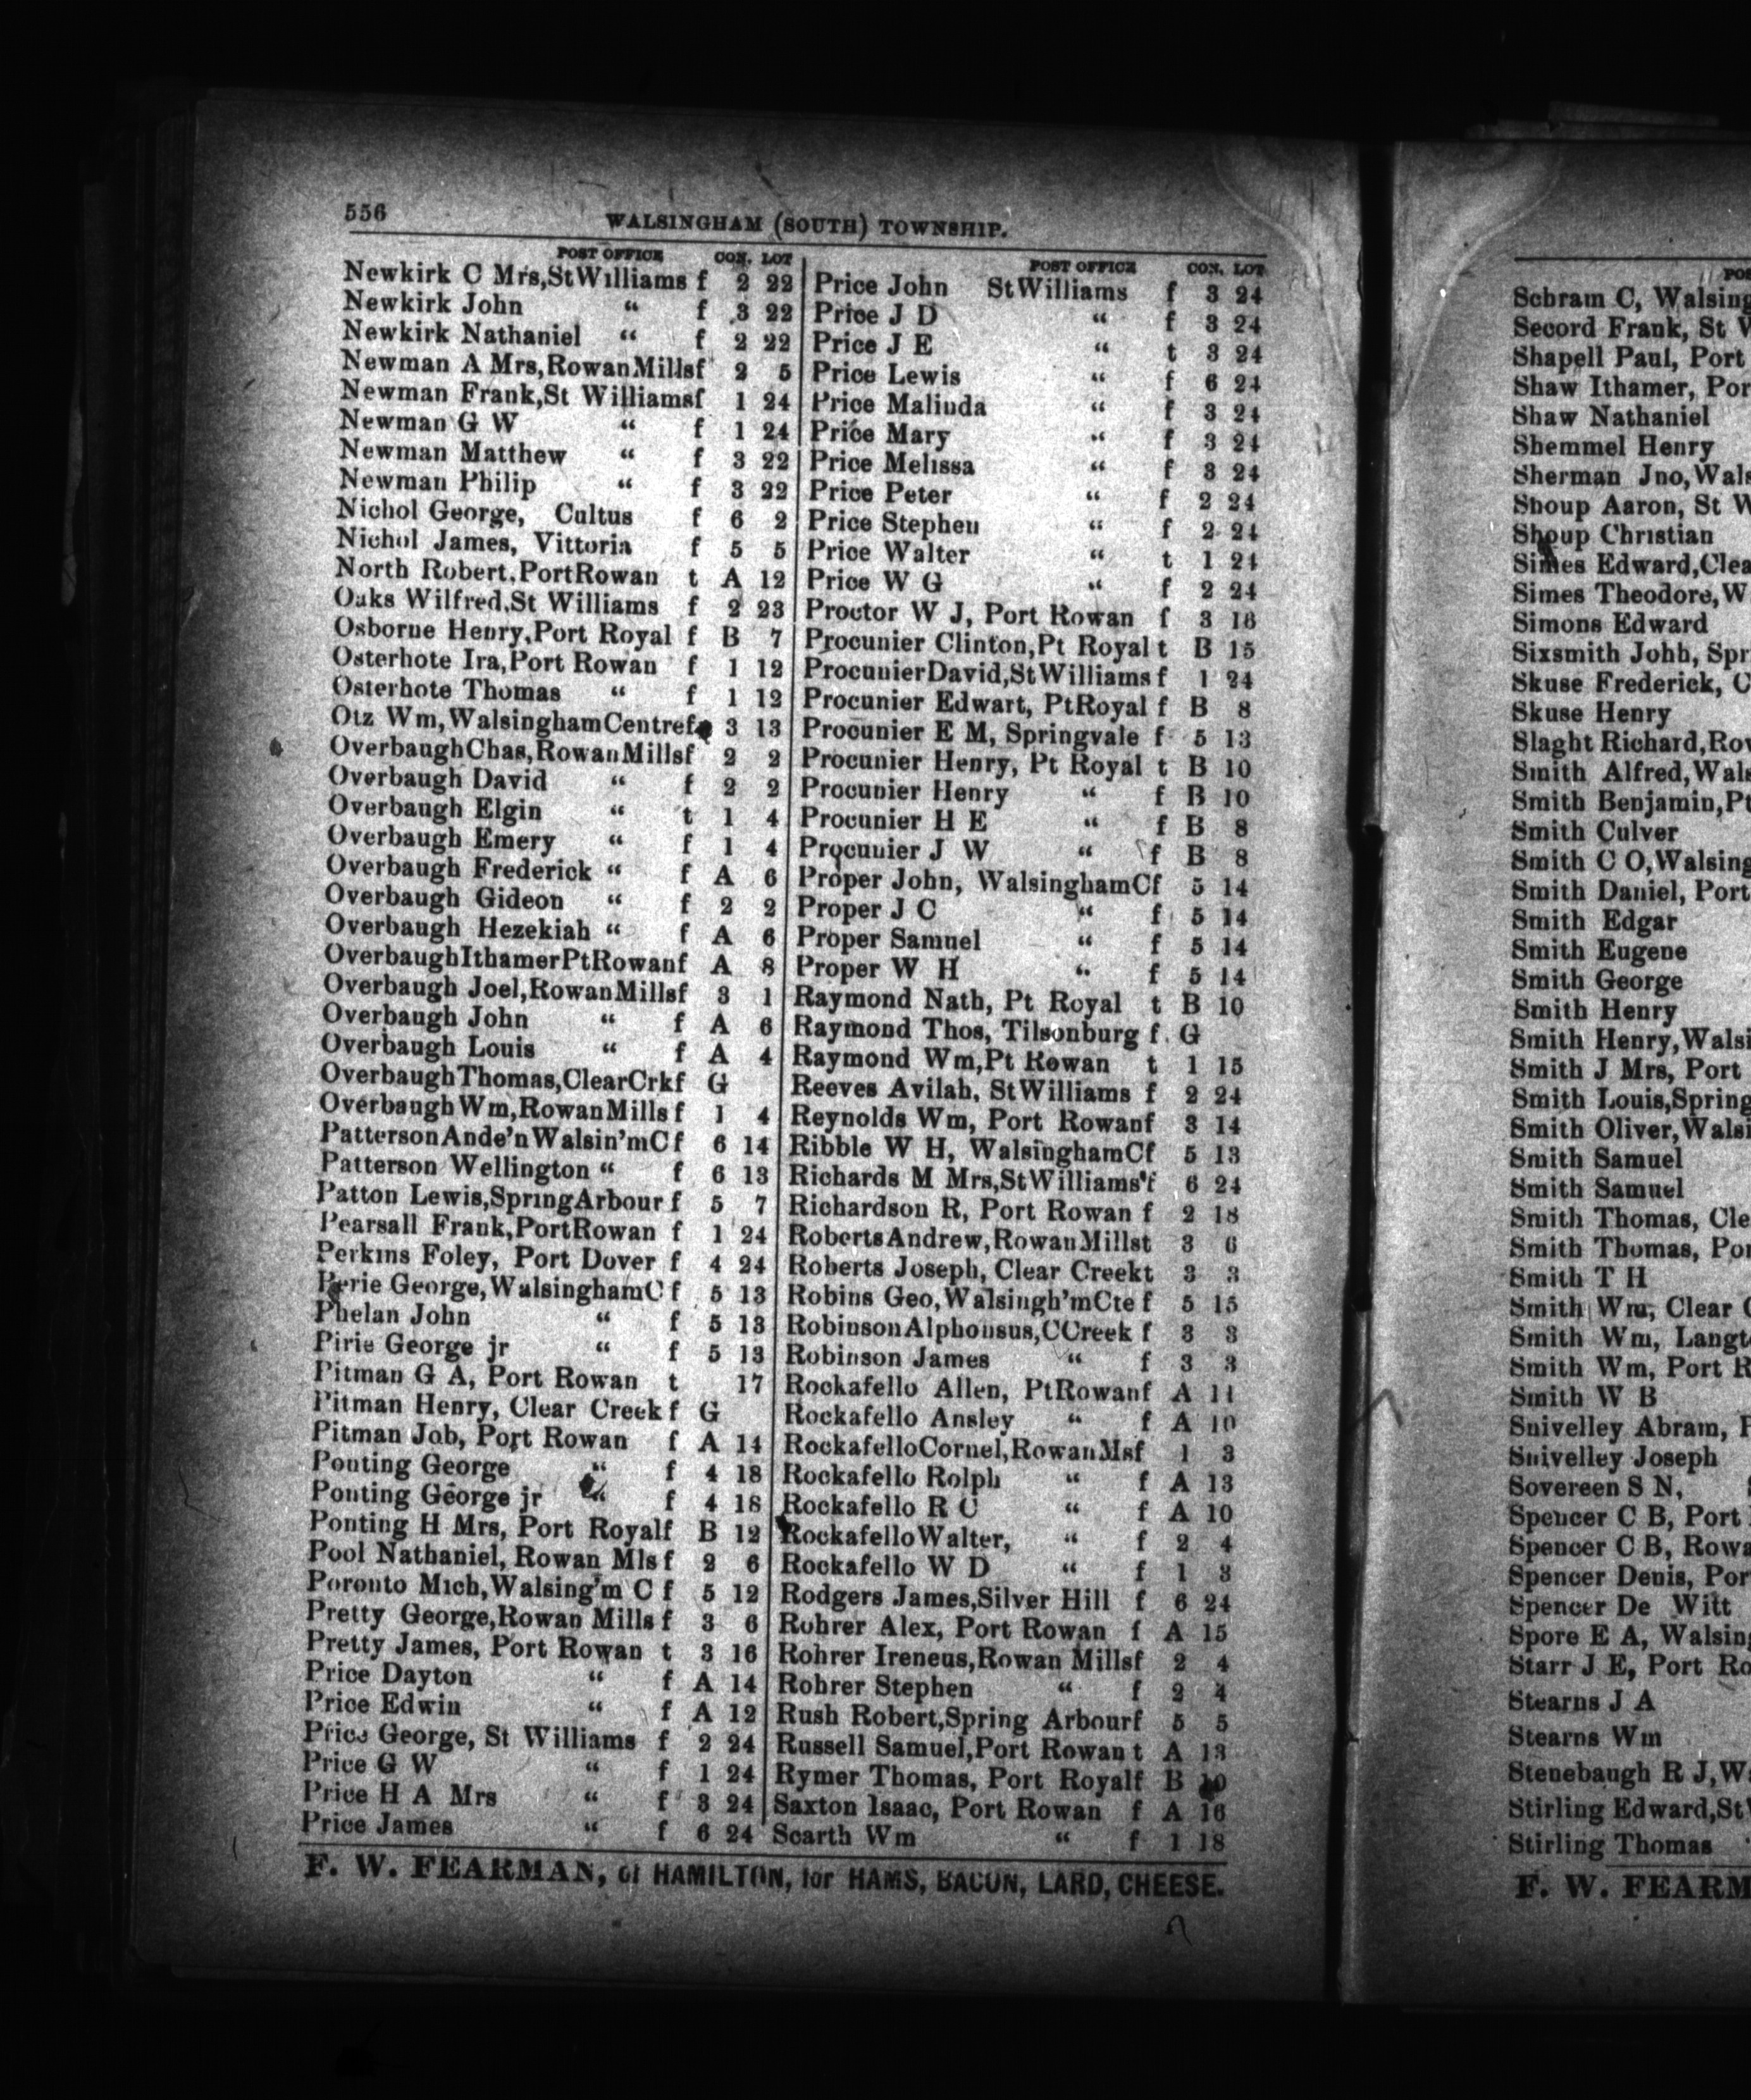 556
WALSINGHAM (SOUTH) TOWNSHIP.
POST OFFICE CON. LOT
Newkirk C Mrs,StWilliams f 2 22
Newkirk John “ f 3 22
Newkirk Nathaniel “ f 2 22
Newman A Mrs,RowanMillsf 2 5
Newman Frank,St Williamsf 1 24
Newman G W “ f 1 24
Newman Matthew “ f 3 22
Newman Philip “ f 3 22
Nichol George, Cultus f 6 2
Nichol James, Vittoria f 5 5
North Robert.PortRowan t A 12
Oaks Wilfred.St Williams f 2 23
Osborne Henry,Port Royal f B 7
Osterhote Ira,Port Rowan f 1 12
Osterhote Thomas “ f 1 12
Otz Wm,WalsinghamCentref 3 13
OverbaughChas,RowanMillsf 2 2
Overbaugh David “ f 2 2
Overbaugh Elgin “ t 1 4
Overbaugh Emery “ f 1 4
Overbaugh Frederick “ f A 6
Overbaugh Gideon “ f 2 2
Overbaugh Hezekiah “ f A 6
OverbaughIthamerPtRowanf A 8
Overbaugh Joel,RowanMillsf 3 1
Overbaugh John “ f A 6
Overbaugh Louis “ f A 4
OverbaughThomas,ClearCrkf G
OverbaughWm,RowanMills f 1 4
PattersonAnde'nWalsin'mC f 6 14
Patterson Wellington “ f 6 13
Patton Lewis,SpringArbour f 5 7
Pearsall Frank,PortRowan f 1 24
Perkins Foley, Port Dover f 4 24
Perie George,WalsinghamC f 5 13
Phelan John “ f 5 13
Pirie George jr “ f 5 13
Pitman G A, Port Rowan t 17
Pitman Henry, Clear Creek f G
Pitman Job, Port Rowan f A 14
Ponting George “ f 4 18
Ponting George jr “ f 4 18
Ponting H Mrs, Port Royalf B 12
Pool Nathaniel, Rowan Mls f 2 6
Poronto Mich,Walsing'm C f 5 12
Pretty George,Rowan Mills f 3 6
Pretty James, Port Rowan t 3 16
Price Dayton “ f A 14
Price Edwin “ f A 12
Price George, St Williams f 2 24
Price G W “ f 1 24
Price H A Mrs “ f 3 24
Price James “ f 6 24
POST OFFICE CON. LOT
Price John StWilliams f 3 24
Price J D “ f 3 24
Price J E “ t 3 24
Price Lewis “ f 6 24
Price Malinda “ f 3 24
Price Mary “ f 3 24
Price Melissa “ f 3 24
Price Peter “ f 2 24
Price Stephen “ f 2 24
Price Walter “ t 1 24
Price W G “ f 2 24
Proctor W J, Port Rowan f 3 16
Procunier Clinton,Pt Royal t B 15
ProcunierDavid,StWilliams f 1 24
Procunier Edwart, PtRoyal f B 8
Procunier E M, Springvale f 5 13
Procunier Henry, Pt Royal t B 10
Procunier Henry “ f B 10
Procunier H E “ f B 8
Procunier J W “ f B 8
Proper John, WalsinghamCf 5 14
Proper J C “ f 5 14
Proper Samuel “ f 5 14
Proper W H “ f 5 14
Raymond Nath, Pt Royal t B 10
Raymond Thos, Tilsonburg f G
Raymond Wm,Pt Rowan t 1 15
Reeves Avilah, StWilliams f 2 24
Reynolds Wm, Port Rowanf 3 14
Ribble W H, WalsinghamCf 5 13
Richards M Mrs,StWilliams'f 6 24
Richardson R, Port Rowan f 2 18
RobertsAndrew,RowanMillst 3 6
Roberts Joseph, Clear Creekt 3 3
Robins Geo,Walsingh'mCte f 5 15
RobinsonAlphonsus,CCreek f 3 3
Robinson James “ f 3 3
Rockafello Allen, PtRowanf A 11
Rockafello Ansley “ f A 10
RockafelloCornel,RowanMsf 1 3
Rockafello Rolph “ f A 13
Rockafello R C “ f A 10
RockafelloWalter, “ f 2 4
Rockafello W D “ f 1 3
Rodgers James,Silver Hill f 6 24
Rohrer Alex, Port Rowan f A 15
Rohrer Ireneus,Rowan Millsf 2 4
Rohrer Stephen “ f 2 4
Rush Robert,Spring Arbourf 5 5
Russell Samuel,Port Rowan t A 13
Rymer Thomas, Port Royalf B 10
Saxton Isaac, Port Rowan f A 16
Scarth Wm “ f 1 18
F. W. FEARMAN, of HAMILTON, for HAMS, BACON, LARD, CHEESE.
POS
Schram C, Walsing
Secord Frank, St
Shapell Paul, Port
Shaw Ithamer, Por
Shaw Nathaniel
Shemmel Henry
Sherman Jno,Wals
Shoup Aaron, St W
Shoup Christian
Simes Edward,Clea
Simes Theodore,W
Simons Edward
Sixsmith Johh, Spr
Skuse Frederick, C
Skuse Henry
Slaght Richard,Row
Smith Alfred,Wals
Smith Benjamin,Pt
Smith Culver
Smith C O,Walsing
Smith Daniel, Port
Smith Edgar
Smith Eugene
Smith George
Smith Henry
Smith Henry,Walsi
Smith J Mrs, Port
Smith Louis,Spring
Smith Oliver,Walsi
Smith Samuel
Smith Samuel
Smith Thomas, Cle
Smith Thomas, Por
Smith T H
Smith Wm, Clear C
Smith Wm, Langt
Smith Wm, Port R
Smith W B
Snivelley Abram, P
Snivelley Joseph
Sovereen S N,
Spencer C B, Port
Spencer C B, Rowa
Spencer Denis, Por
Spencer De Witt
Spore E A, Walsing
Starr J E, Port Ro
Stearns J A
Stearns Wm
Stenebaugh R J,Wa
Stirling Edward,St
Stirling Thomas
F. W. FEARM